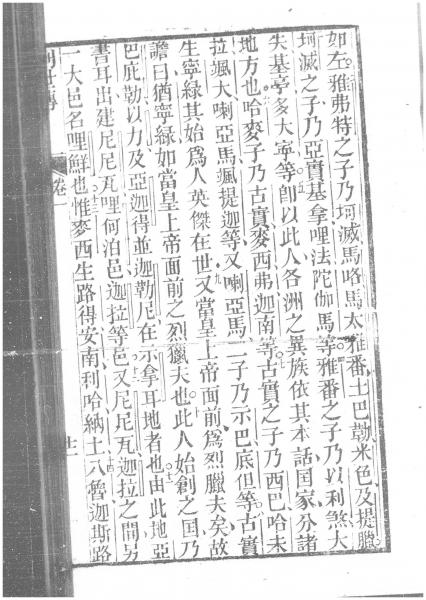 如左雅弗特之子乃坷滅馬咯馬太雅番土巴勒米色及提臘
坷滅之子乃亞實基拿哩法陀伽馬等雅番之子乃以利煞大
失基亭多大寧等卽以此人各洲之異族依其本話国家分諸
地方也哈麥子乃古實麥西弗迦南等古實之子乃西巴哈未
拉颯大喇亞馬颯提迦等又喇亞馬二子乃示巴底但等古實
生寧綠其始爲人英傑在世又當皇上帝面前爲烈臘夫矣故
諺曰猶寧綠如當皇上帝面前之烈獵夫也此人始創之国乃
巴庇勒以力及亞迦得並迦勒尼在示拿耳地者也由此地亞
書耳出建尼尼瓦哩何泊邑迦拉等邑又尼尼瓦迦拉之間另
一大邑名哩鮮也惟麥西生路得安南利哈納土八魯迦斯路
卷一